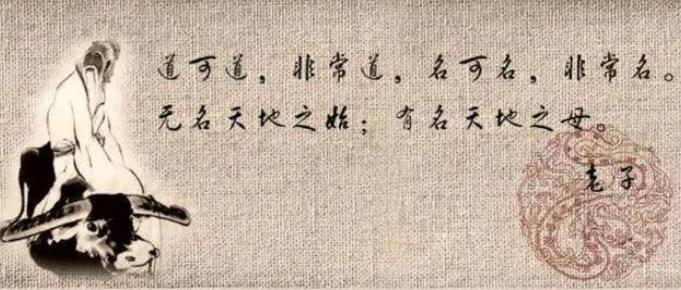 道可道，非常道，名可名，非常名。
无名天地之始；有名天地之母。
老子